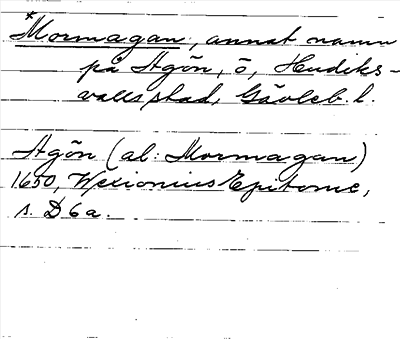 *Mormagan, annat namn
på Agön, ö, Hudiks-
valls stad, Gävleb. l.
Agön (al: Mormagan)
1650, Wexionius Epitome,
s. D 6 a.